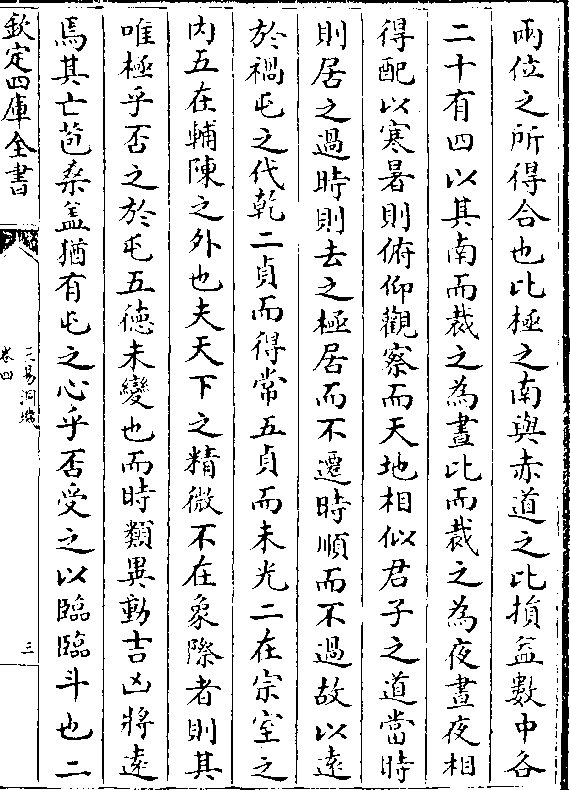 兩位之所得合也比極之南與赤道之比損益數中各
二十有四以其南而裁之為晝比而裁之為夜晝夜相
得配以寒暑則俯仰觀察而天地相似君子之道當時
則居之過時則去之極居而不遷時順而不過故以遠
於禍屯之代乾二貞而得常五貞而未光二在宗室之
内五在輔陳之外也夫天下之精微不在象際者則其
唯極乎否之於屯五德未變也而時類異動吉凶將遠
焉其亡苞桑盖猶有屯之心乎否受之以臨臨斗也二
欽定四庫全書
三易洞璣
卷四
三